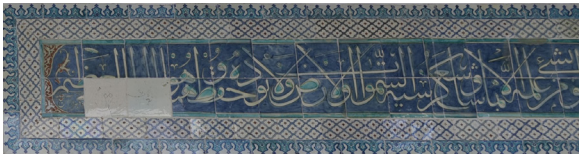 بشئ من علمه الا بما شاء وسع كرسيه السموات والارض ولا يؤده حفظهما وهو العلي العظيم